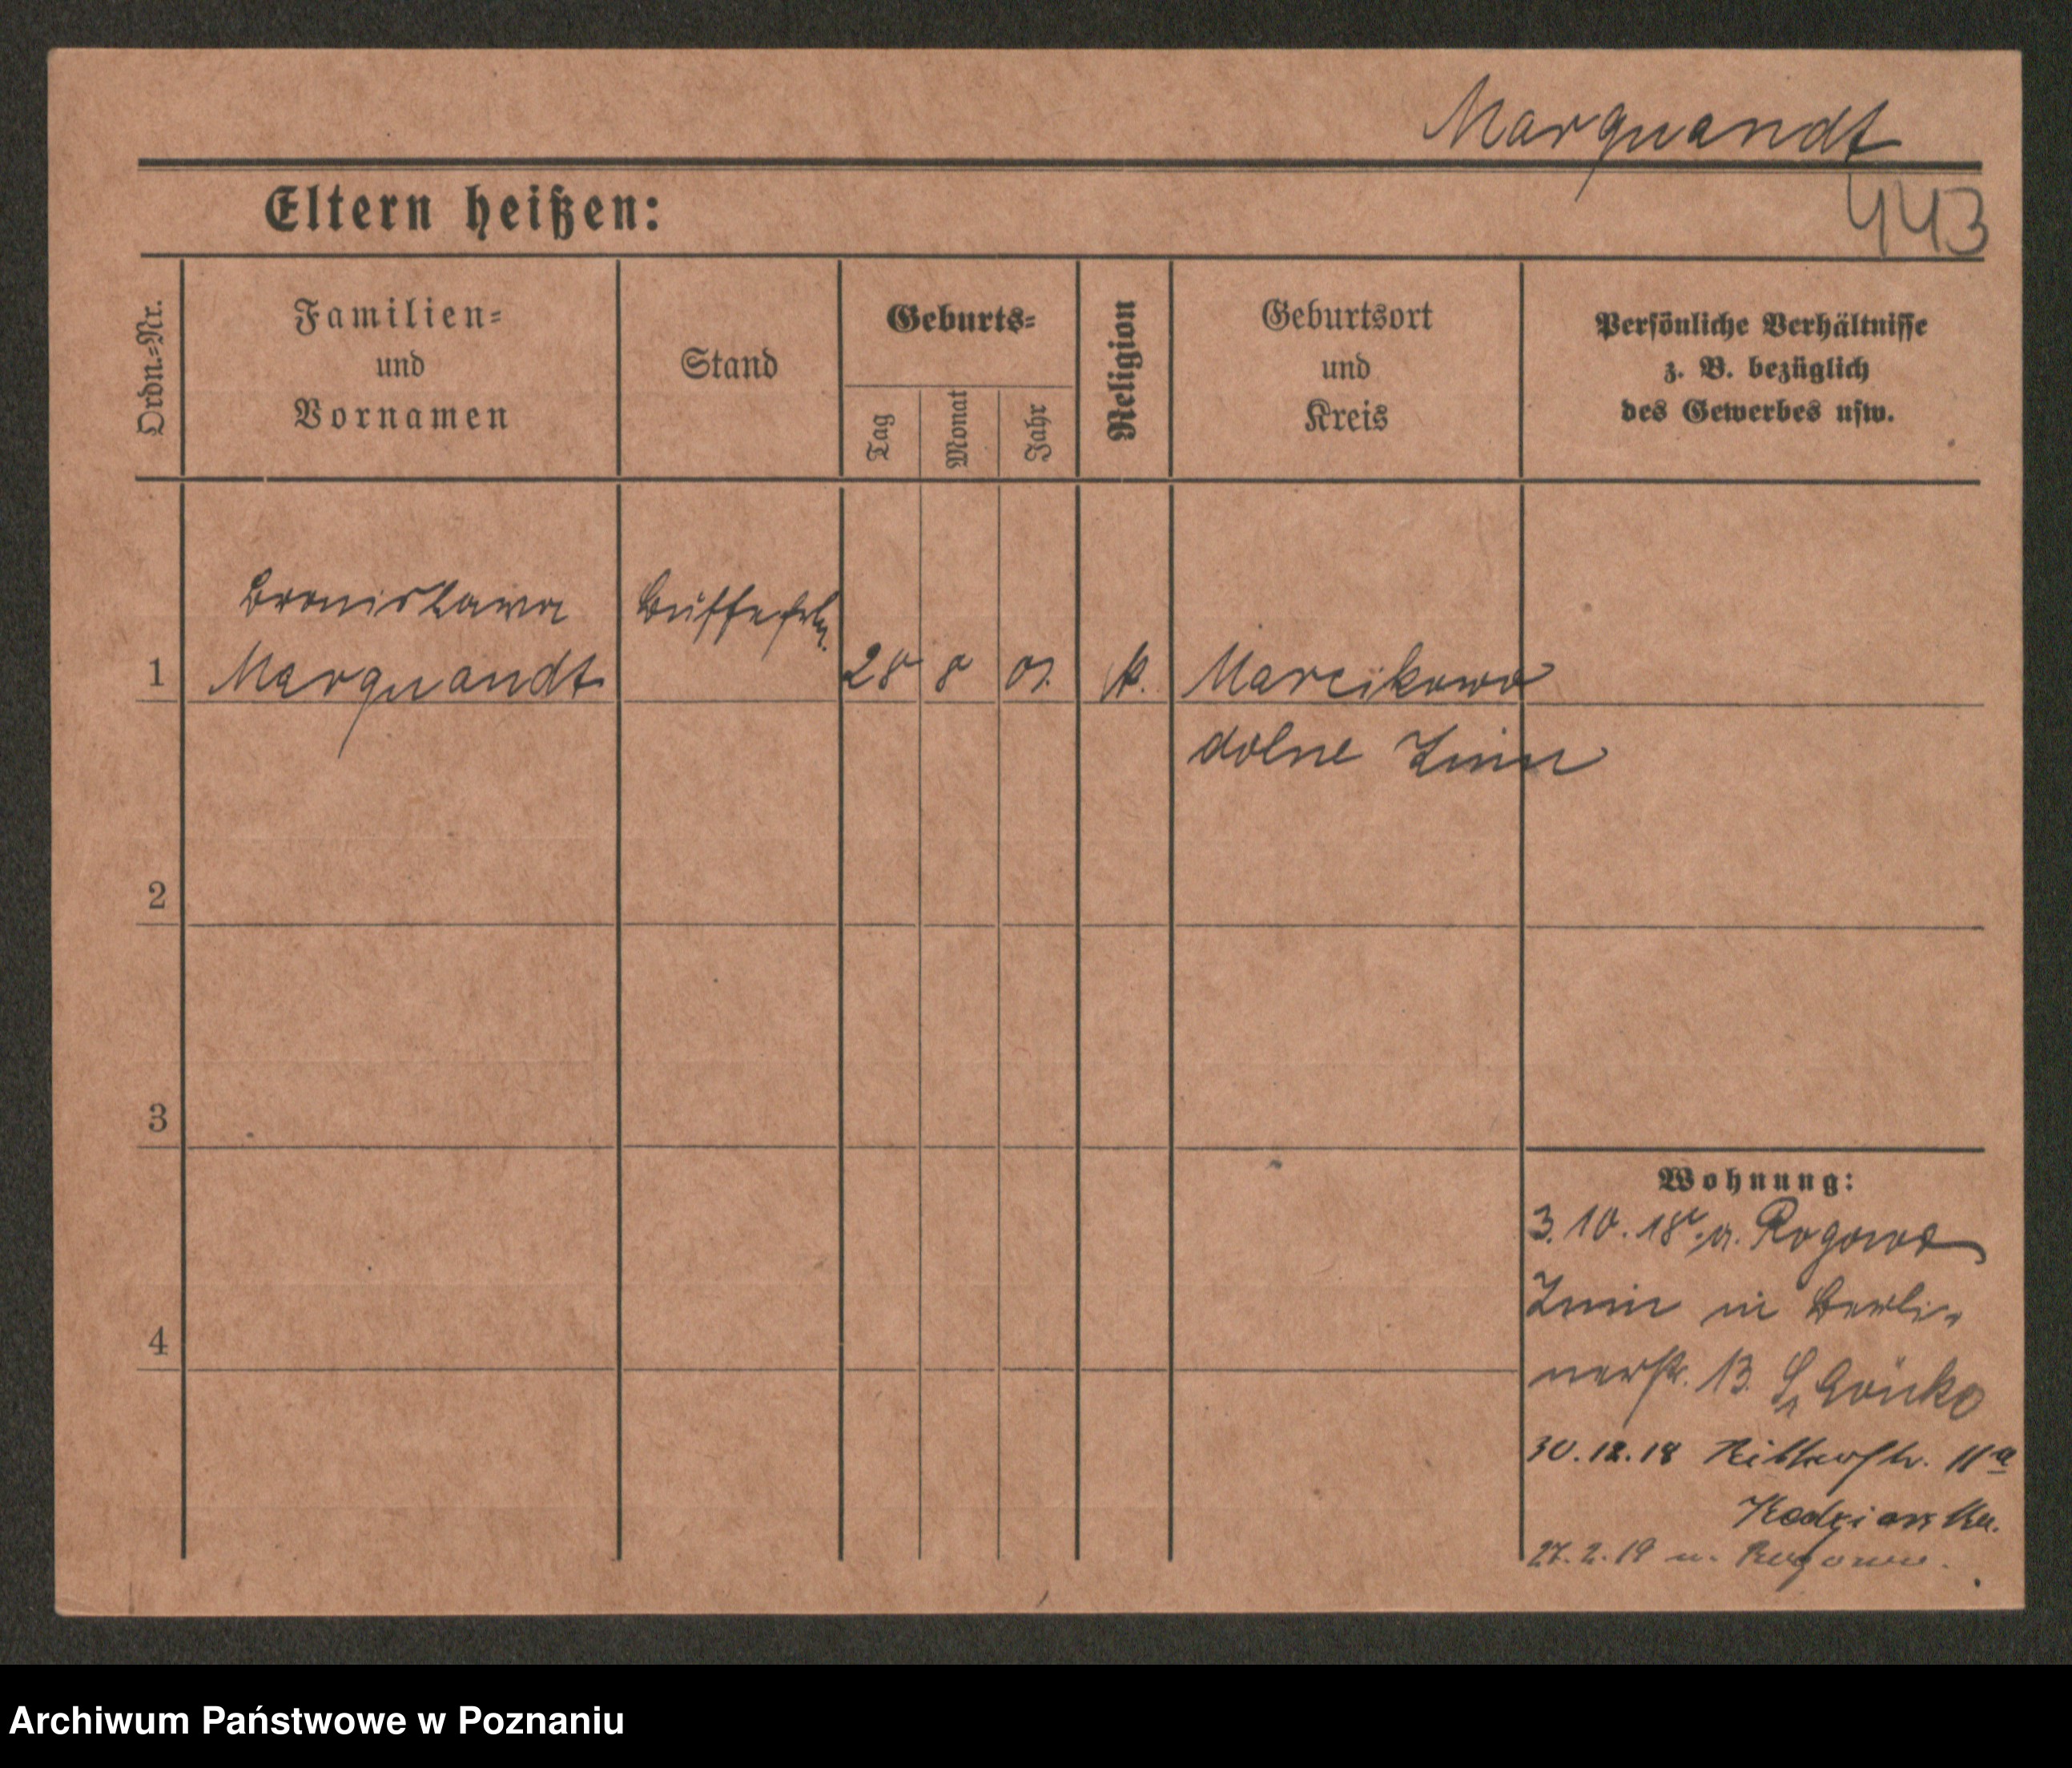 Marquandt
443
Eltern heißen:
Ordn.-Nr.
Familien-
und
Vornamen
Stand
Geburts-
Tag
Monat
Jahr
Religion
Geburtsort
und
Kreis
Persönliche Verhältnisse
z. B. bezüglich
des Gewerbes usw.
Bronisława
1 Marquandt 28 8 k. Marcikowo
dolne Znin
2
3
4
Wohnung:
3.10.18 Rogowo
Znin in Berli-
nerstr. 13.
30.12.18 Ritterstr. 11a
27.2.19 n. Rogowo.
Archiwum Państwowe w Poznaniu